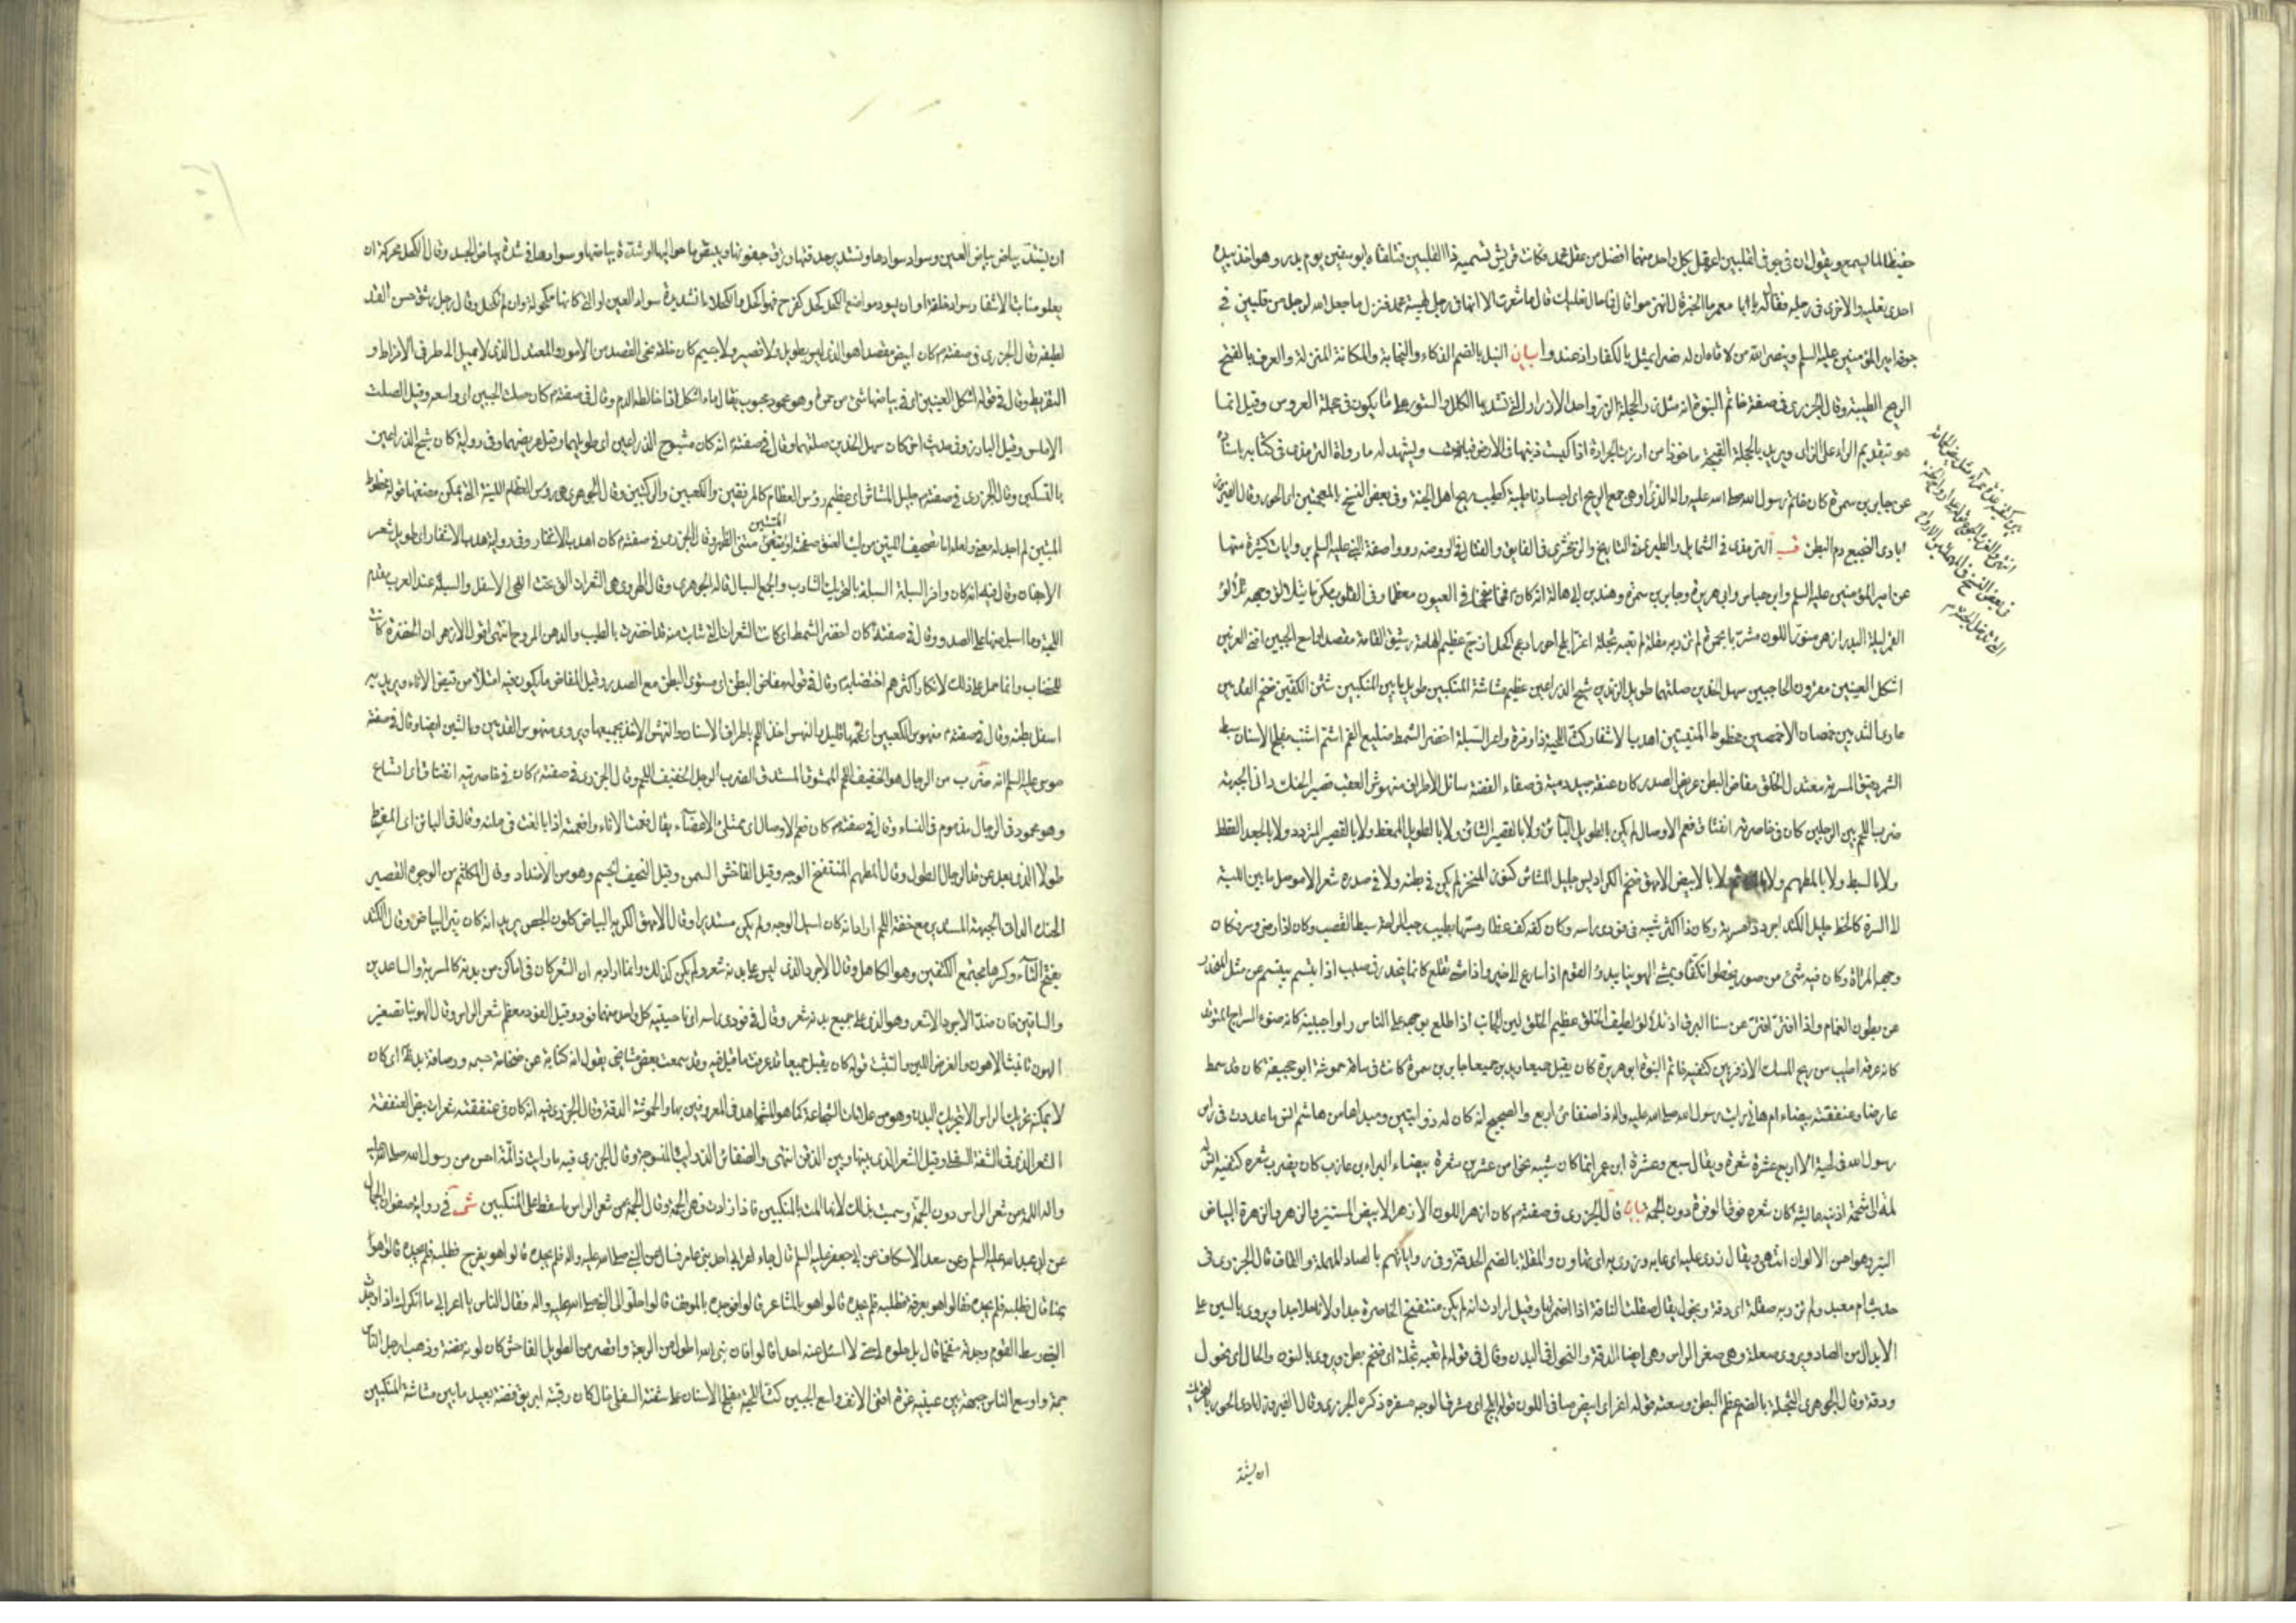 حفيظا لما يسمع ويقول ان في جوفي لقلبين اعقل بكل واحد منهما افضل من عقل محمد فكانت قريش تسميه ذا القلبين فتلقاه ابو سفين يوم بدر وهو اخذ بيده
احدى نعليه والاخرى في رجله فقال له يا ابا معمر ما الخبر قال انهزموا قال فما حال نعليك قال ما شعرت الا انهما في رجلي لهيبة محمد فنزل ما جعل الله لرجل من قلبين في
جوفه امير المؤمنين عليه السلم وينصر الله من لاقاه ان له ضرا يمثل بالكفار اذ عندوا بيان النبل بالضم الذكاء والنجابة والمكانة المنزلة والعرف بالفتح
الريح الطيبة وقال الجزري في صفة خاتم النبوة انه مثل زر الحجلة الزر واحد الازرار التي تشد بها الكلل والستور على ما يكون في حجلة العروس وقيل انما
هو بتقديم الراء على الزاي ويريد بالحجلة القبجة ماخوذا من ارزت الجرادة اذا كبست ذنبها في الارض فباضت ويشهد له ما رواه الترمذي في كتابه باسناده
عن جابر بن سمرة كان خاتم رسول الله صلى الله عليه واله الذي
ايادي النجيع دم البطن قب الترمذي في الشمايل والطبري في التاريخ والزمخشري في الفايق والفتال في الروضة رووا صفة النبي عليه السلم بروايات كثيرة منها
عن امير المؤمنين عليه السلم وابن عباس وابي هريرة وجابر بن سمرة وهند بن ابي هالة انه كان ص فخما مفخما في العيون معظما وفي القلوب مكرما يتلالؤ وجهه تلالؤ
القمر ليلة البدر ازهر منور اللون مشربا بحمرة لم تزر به مقلة لم تعبه ثجلة اغر ابلج احور ادعج اكحل ازج عظيم الهامة رشيق القامة مقصدا واسع الجبين اقنى العرنين
اشكل العينين مقرون الحاجبين سهل الخدين صلتهما طويل الزندين شبح الذراعين عظيم مشاشة المنكبين طويل ما بين المنكبين شثن الكفين ضخم القدمين
عاري الثديين خمصان الاخمصين مخطوط المتنين اهدب الاشفار كث اللحية ذا وفرة وافر السبلة اخضر الشمط ضليع الفم اشم اشنب مفلج الاسنان سبط
الشعر دقيق المسربة معتدل الخلق مفاض البطن عريض الصدر كان عنقه جيد دمية في صفاء الفضة سائل الاطراف منهوش العقب قصير الحنك داني الجبهة
ضرب اللحم بين الرجلين كان في خاصرته انفتاق فعم الاوصال لم يكن بالطويل البائن ولا بالقصير الشائن ولا بالطويل الممغط ولا بالقصير المتردد ولا بالجعد القطط
ولا بالسبط ولا بالمطهم ولا بالمكلثم ولا بالابيض الامهق ضخم الكراديس جليل المشاش كنوز المنخر لم يكن في بطنه ولا في صدره شعر الا موصل ما بين اللبة
الى السرة كالخط جليل الكتد اجرد ذا مسربة وكان ذا اكثر شيبه في فودي راسه وكان كفه كف عطار مسها بطيب رحب الراحة سبط القصب وكان اذا رضي وسر فكان
وجهه المرآة وكان فيه شئ من صور يخطو تكفؤا ويمشي الهوينا يبدء القوم اذا سارع الى خير واذا مشى تقلع كانما ينحدر في صبب اذا تبسم يتبسم عن مثل المنحدر
عن بطون الغمام واذا افتر افتر عن سنا البرق اذا تلالؤ لطيف الخلق عظيم الخلق لين الجانب اذا طلع بوجهه على الناس راوا جبينه كانه ضوء السراج المتوقد
كان عرقه اطيب من ريح المسك الاذفر بين كتفيه خاتم النبوة ابو هريرة كان يقبل جميعا ويدبر جميعا جابر بن سمرة كانت في ساقه حموشة ابو جحيفة كان قد سمط
عارضاه وعنفقته بيضاء ام هاني رايت رسول الله صلى الله عليه واله ذا ضفائر اربع والصحيح انه كان له ذؤابتين ومبدؤها من هاشم انس ما عددت في راس
رسول الله في لحيته الا اربع عشرة شعرة ويقال سبع عشرة ابن عمر انما كان شيبه نحوا من عشرين شعرة بيضاء البراء بن عازب كان يضرب شعره كتفيه انس
له لمة الى شحمة اذنيه عائشة كان شعره فوق الوفرة دون الجمة بيان قال الجزري في صفته ص كان ازهر اللون الازهر الابيض المستنير والزهر والزهرة البياض
النير وهو احسن الالوان انتهى ويقال زرى عليه اي عابه وزرى به اي تهاون والمقلة بالضم الحدقة وفي رواياتهم بالصاد المهملة والقاف قال الجزري في
حديث ام معبد ولم تزر به صقلة اي دقة ونحول يقال صقلت الناقة اذا اضمرتها وقيل ارادت انه لم يكن منتفخ الخاصرة جدا ولا ناحلا جدا ويروى بالسين على
الابدال من الصاد ويروى صعلة وهي صغر الراس وهي ايضا الدقة والنحول في البدن وقال في قوله لم تعبه ثجلة اي ضخم بطن ويروى بالنون والحاء اي نحول
ودقة وقال الجوهري الثجلة بالضم عظم البطن وسعته قوله اغر اي ابيض صافي اللون قوله ابلج اي مشرق الوجه مسفره ذكره الجزري وقال الفيروزابادي الحور بالتحريك
ان يشتد
ان يشتد بياض بياض العين وسواد سوادها وتستدير حدقتها وترق جفونها ويبيض ما حواليها او شدة بياضها وسوادها في شدة بياض الجسد وقال الكحل محركة ان
يعلو منابت الاشفار سواد خلقة او ان يسود مواضع الكحل كحل كفرح فهو اكحل والكحلاء الشديدة سواد العين او التي كانها مكحولة وان لم تكحل وقال رجل رشيق حسن القد
لطيفه وقال الجزري في صفته ص كان ابيض مقصدا هو الذي ليس بطويل ولا قصير ولا جسيم كان خلقه نحى القصد من الامور والمعتدل الذي لا يميل الى طرفي الافراط و
التفريط وقال في قوله اشكل العينين اي في بياضها شئ من حمرة وهو محمود محبوب يقال ماء اشكل اذا خالطه الدم وقال في صفته ص كان صلت الجبين اي واسعه وقيل الصلت
الاملس وقيل البارز وفي حديث اخر كان سهل الخدين صلتهما وقال في صفته انه كان مشبوح الذراعين اي طويلهما وقيل عريضهما وفي رواية كان شبح الذراعين
بالتسكين وقال الجزري في صفته ص جليل المشاش اي عظيم رؤس العظام كالمرفقين والكعبين والركبتين وقال الجوهري هي رؤس العظام اللينة التي يمكن مضغها قوله مخطوط
المتنين
الاجفان وقال فيه انه كان وافر السبلة السبلة بالتحريك الشارب والجمع السبال قاله الجوهري وقال الهروي هي الشعرات التي تحت اللحي الاسفل والسبلة عند العرب مقدم
اللحية وما اسبل منها على الصدر وقال في صفته كان اخضر الشمط اي كانت الشعرات التي شابت منه قد اخضرت بالطيب والدهن المروح انتهى اقول الاظهر ان الخضرة كانت
للخضاب وانما حمل على ذلك لانكار اكثرهم اختضابه ص وقال في قوله مفاض البطن اي مستوي البطن مع الصدر وقيل المفاض ما يكون فيه امتلاء من فيض الاناء ويريد به
اسفل بطنه وقال في صفته ص منهوس الكعبين اي لحمهما قليل والنهس اخذ اللحم باطراف الاسنان والنهش الاخذ بجميعها ويروى منهوس القدمين وبالشين ايضا وقال في صفة
موسى عليه السلم انه ضرب من الرجال هو الخفيف اللحم الممشوق المستدق الضرب الرجل الخفيف اللحم وقال الجزري في صفته ص كان في خاصرتيه انفتاق اي اتساع
وهو محمود في الرجال مذموم في النساء وقال في صفته ص كان فعم الاوصال اي ممتلئ الاعضاء يقال فعمت الاناء وافعمته اذا بالغت في ملئه وقال في البائن اي المفرط
طولا الذي بعد عن قد الرجال الطول وقال المطهم المنتفخ الوجه وقيل الفاحش السمن وقيل النحيف الجسم وهو من الاضداد وقال المكلثم من الوجوه القصير
الحنك الداني الجبهة المستدير مع خفة اللحم اراد انه كان اسيل الوجه ولم يكن مستديرا وقال الامهق الكريه البياض كلون الجص يريد انه كان نير البياض وقال الكتد
بفتح التاء وكسرها مجتمع الكتفين وهو الكاهل وقال الاجرد الذي ليس على بدنه شعر ولم يكن كذلك وانما اراد به ان الشعر كان في اماكن من بدنه كالمسربة والساعدين
والساقين فان ضد الاجرد الاشعر وهو الذي على جميع بدنه شعر وقال في فودي راسه اي ناحيتيه كل واحد منهما فود وقيل الفود معظم شعر الراس وقال الهوينا تصغير
الهونى تانيث الاهون
لا يمكنه تحريك الراس الا بتحريك البدن وهو من علامات الشجاعة كما هو المشاهد في المعروفين بها والحموشة الدقة وقال الجزري فيه انه كان في عنفقته شعرات بيض العنفقة
الشعر الذي في الشفة السفلى وقيل الشعر الذي بينها وبين الذقن انتهى والضفائر الذوائب المنسوجة وقال الجزري فيه ما رايت ذا لمة احسن من رسول الله صلى الله عليه
واله اللمة من شعر الراس دون الجمة وسميت بذلك لانها المت بالمنكبين فاذا زادت فهي الجمة وقال الجمة من شعر الراس ما سقط على المنكبين شي في رواية صفوان الجمال
عن ابي عبد الله عليه السلم وعن سعد الاسكاف عن ابي جعفر عليه السلم قال جاء اعرابي احد بني عامر فسال عن النبي صلى الله عليه واله فلم يجده قالوا هو بقزح فطلبه فلم يجده قالوا هو
بمنى قال فطلبه فلم يجده فقالوا هو بعرفة فطلبه فلم يجده قالوا هو بالمشاعر قالوا فوجده بالموقف قال حلوا لي النبي صلى الله عليه واله فقال الناس يا اعرابي ما انكرك اذا وجدت
النبي وسط القوم وجدته مفخما قال بل حلوه لي حتى لا اسئل عنه احدا قالوا فان نبي الله اطول من الربعة واقصر من الطويل الفاحش كان لونه فضة وذهب ارجل الناس
جمة واوسع الناس جبهة بين عينيه غرة اقنى الانف واسع الجبين كث اللحية مفلج الاسنان على شفته السفلى خال كان رقبته ابريق فضة بعيد ما بين مشاشة المنكبين